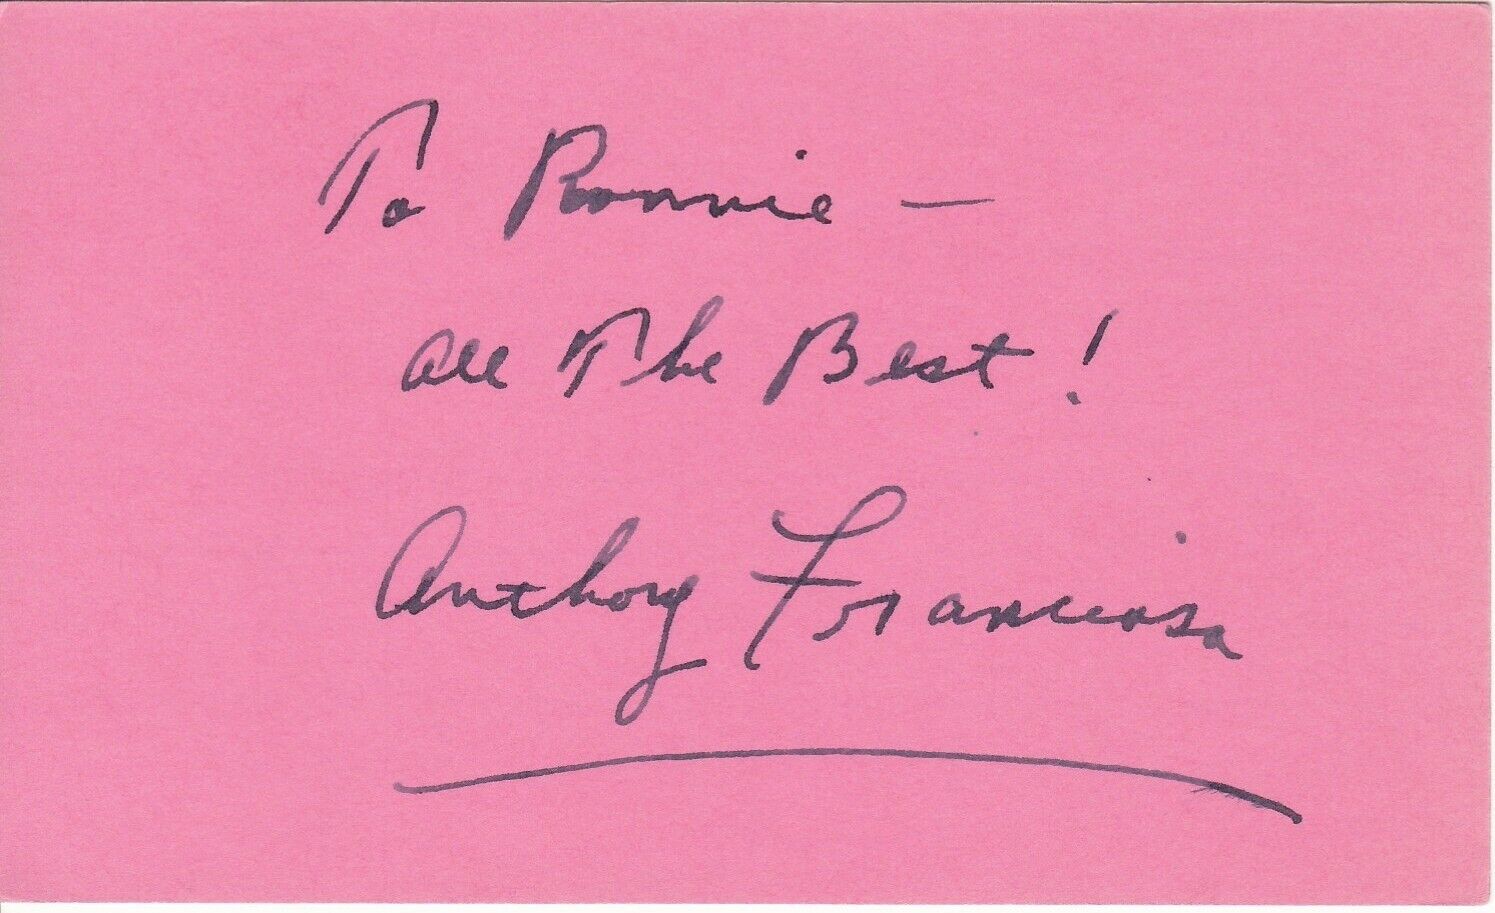 To Ronnie —
All The Best!
Anthony Franciosa